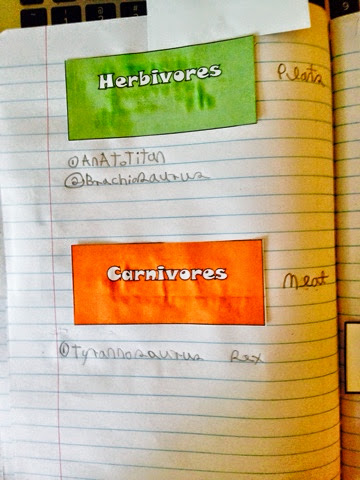 Herbivores
Plants
①AnAtoTitan
②Brachiosaurus
Carnivores
Meat
①Tyrannosaurus Rex